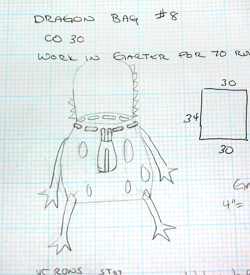 DRAGON BAG #8
CO 30
WORK IN GARTER FOR 70
30
34
30
4"=
45 ROWS ST ST